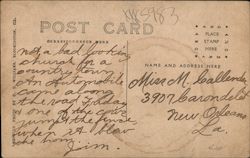 W5983
POST CARD
PLACE
STAMP
HERE
NAME AND ADDRESS HERE
not a bad looking
church for a
country town.
An Automobile
came along
the road today
one
jumped the fence
when it blow
the horn.
Jim.
Miss M. Callender
3907 Carondelet
New Orleans
La.